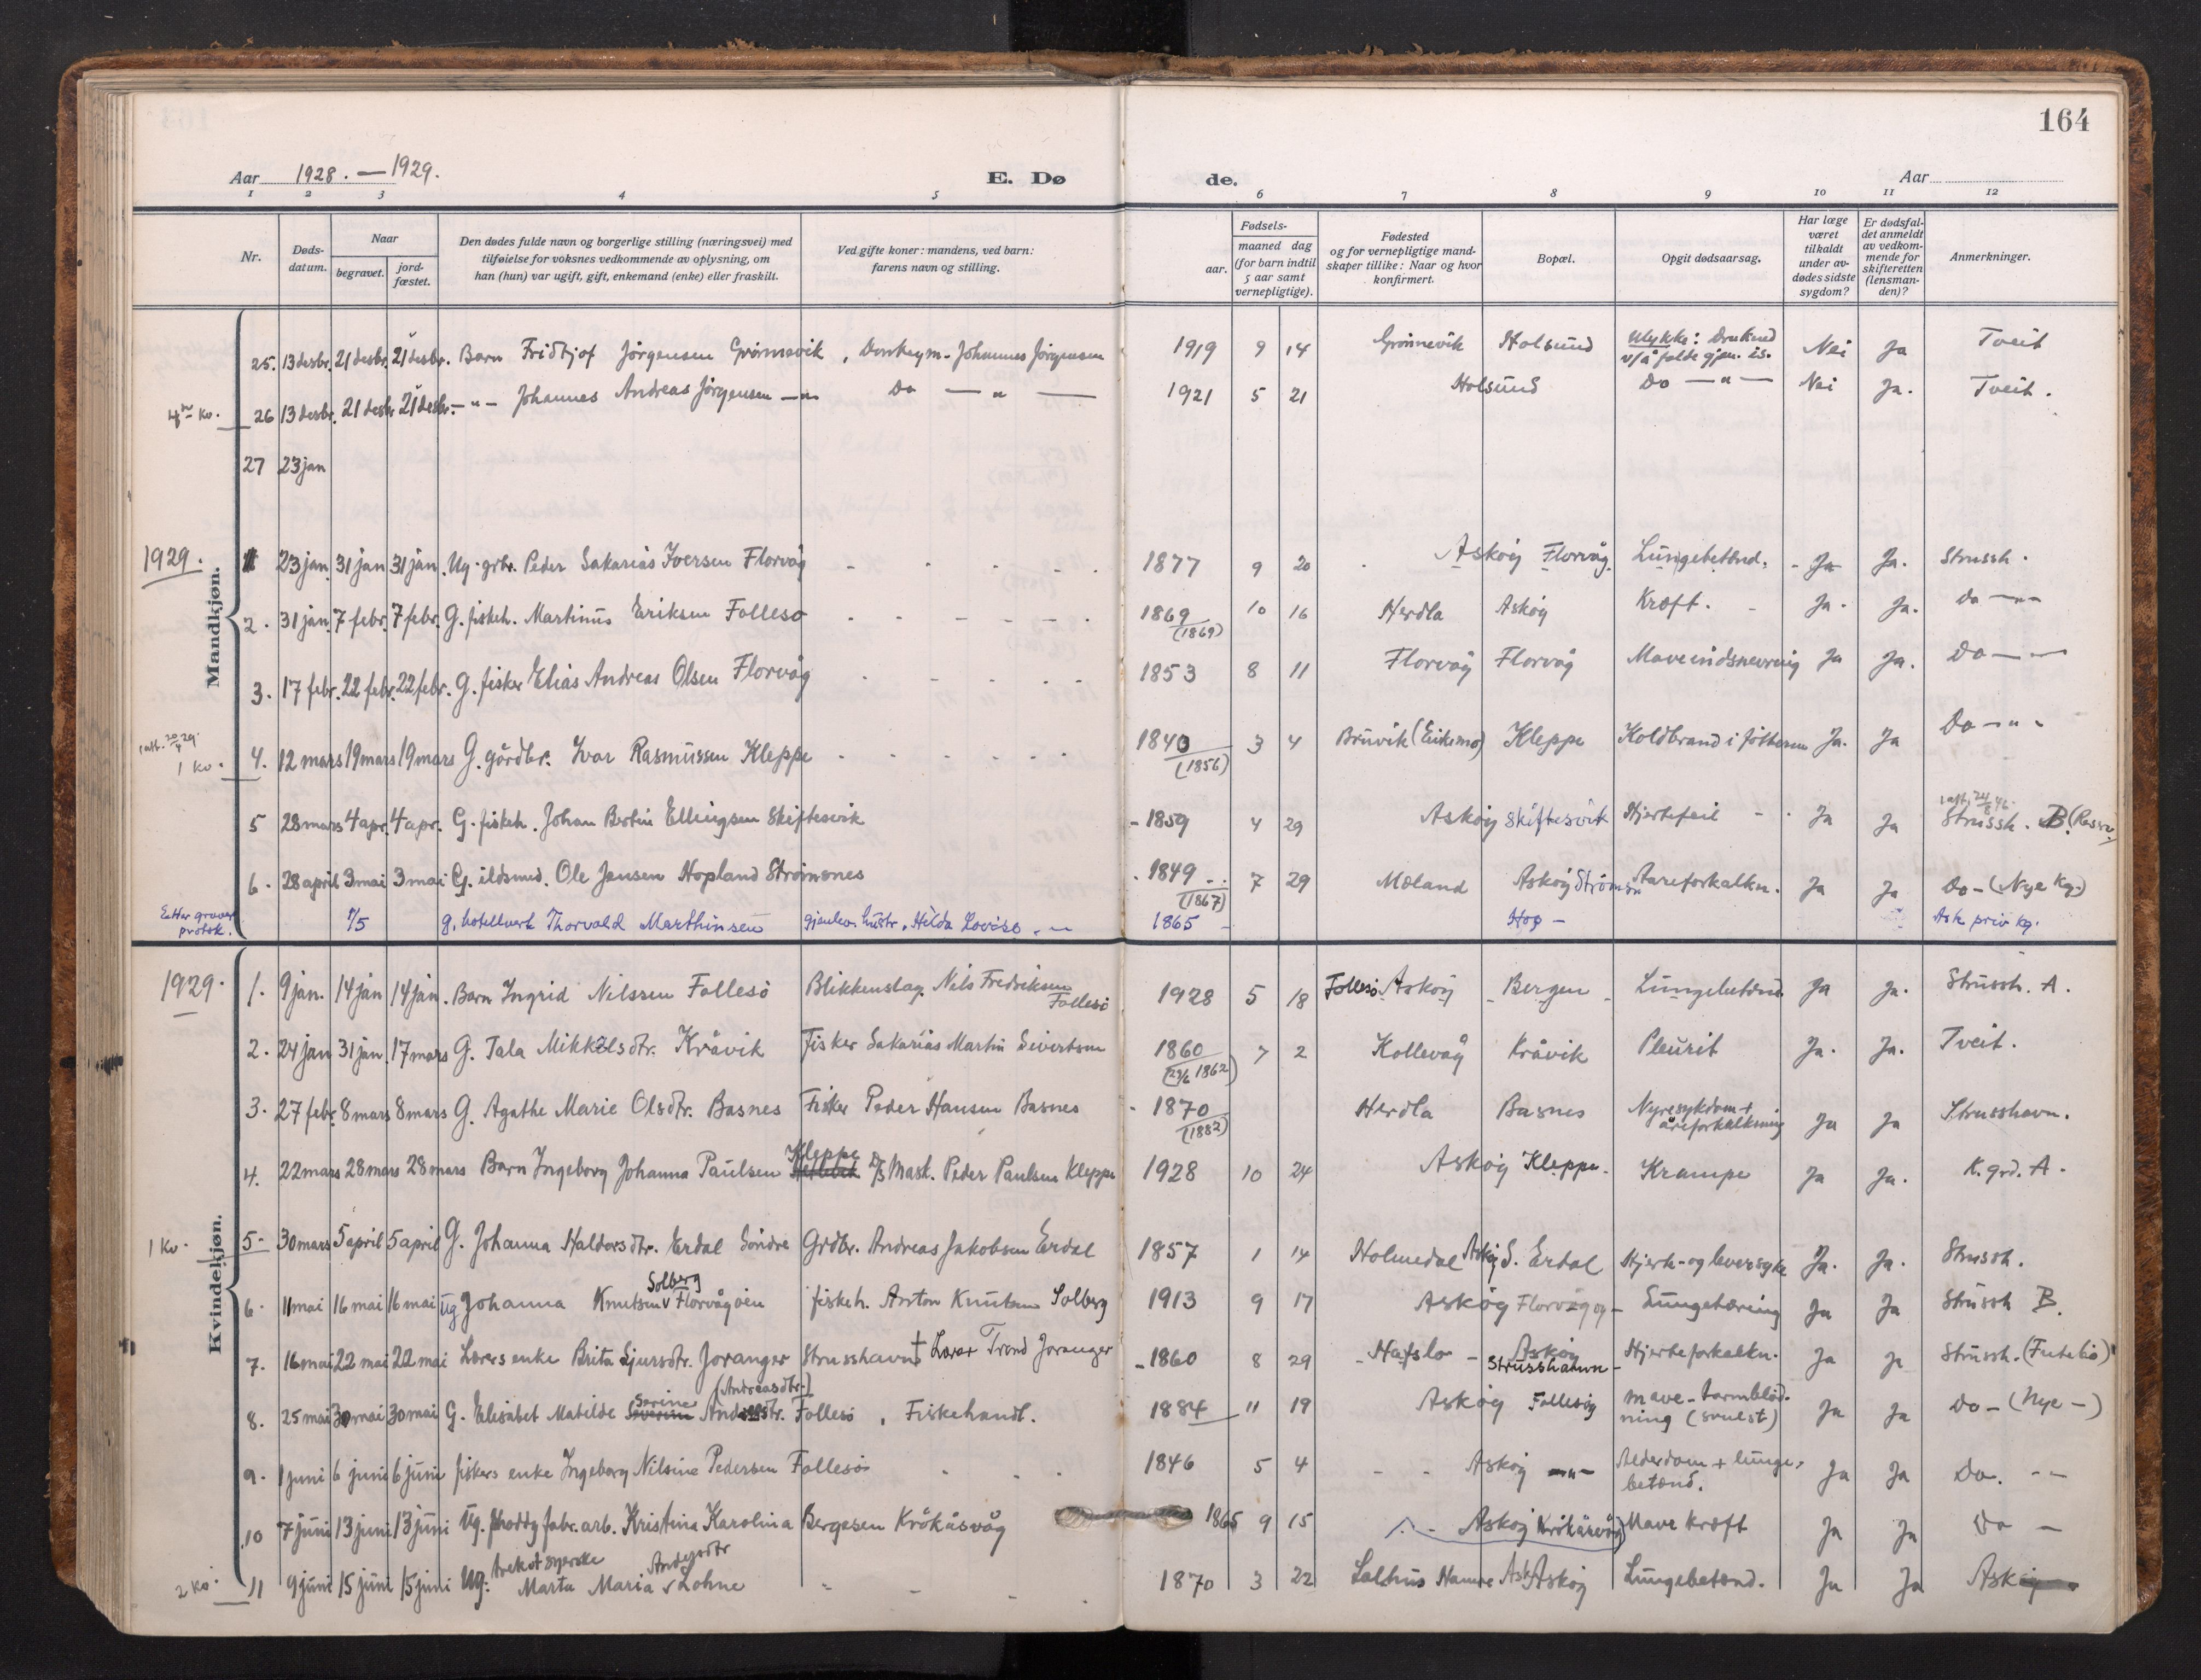 164
Aar 1928. — 1929. E. Dø de. Aar
1 2 3 4 5 6 7 8 9 10 11 12
Nr.
Døds-datum.
Naar
begravet.
jord-fæstet.
Den dødes fulde navn og borgerlige stilling (næringsvei) med
tilføielse for voksnes vedkommende av oplysning, om
han (hun) var ugift, gift, enkemand (enke) eller fraskilt.
Ved gifte koner: mandens, ved barn:
farens navn og stilling.
Fødsels-
aar.
maaned dag
(for barn indtil
5 aar samt
vernepligtige).
Fødested
og for vernepligtige mand-
skaper tillike: Naar og hvor
konfirmert.
Bopæl.
Opgit dødsaarsag.
Har læge
været
tilkaldt
under av-
dødes sidste
sygdom?
Er dødsfal-
det anmeldt
av vedkom-
mende for
skifteretten
(lensman-
den)?
Anmerkninger.
Mandkjøn.
25. 13 desbr. 21 desbr. 21 desbr. Barn Fridtjof Jørgensen Grønnevik, Donkeym. Johannes Jørgensen 1919 9 14 Grønnevik Holsund Ulykke: Druknet v/å falde gjen. is. Nei Ja Tveit
4de kv. 26 13 desbr. 21 desbr 21 desbr. — " — Johannes Andreas Jørgensen — " Do — " — 1921 5 21 Holsund Do — " — Nei Ja. Tveit.
27 23 jan
1929. 1 23 jan. 31 jan 31 jan. Ug. grbr. Peder Sakarias Iversen Florvåg 1877 9 20 Askøy Florvåg. Lungebetænd. Ja Ja. Strussh.
2. 31 jan. 7 febr. 7 febr. G. fiskeh. Martinus Eriksen Follesø 1869 (1869) 10 16 Herdla Askøy Kræft. Ja. Ja. Do — " —
3. 17 febr. 22 febr. 22 febr. G. fisker Elias Andreas Olsen Florvåg 1853 8 11 Florvåg Florvåg Maveindsnevring Ja Ja. Do — " —
1 kv. 4. 12 mars 19 mars 19 mars G. gårdbr. Ivar Rasmussen Kleppe 1840 (1856) 3 4 Bruvik (Eikemo) Kleppe Koldbrand i føtterne Ja. Ja Do — " —
5 28 mars 4 apr. 4 apr. G. fiskeh. Johan Bertin Ellingsen Skiftesvik 1859 4 29 Askøy Skiftesvik Hjertefeil Ja Ja Strussh. B.
6. 28 april 3 mai 3 mai G. ildsmed. Ole Jansen Hopland Strømsnes 1849 (1867) 7 29 Mæland Askøy Strømsn Aareforkalkn. Ja Ja Do — (Nye kg.)
Efter graver protok. 1/5 g. hotellvert Thorvald Marthinsen gjenlev. hustr. Hilda Lovise — " — 1865 Hop — Ask priv kg.
Kvindekjøn.
1929. 1. 9 jan. 14 jan 14 jan. Barn Ingrid Nilssen Follesø Blikkenslag. Nils Fredriksen Follesø 1928 5 18 Follesø Askøy Bergen Lungebetænd Ja Ja. Strussh. A.
2. 24 jan 31 jan. 17 mars G. Tala Mikkelsdtr. Kråvik Fisker Sakarias Martin Sivertsen 1860 (29/6 1862) 7 2 Kollevåg Kråvik Pleurit Ja. Ja. Tveit.
3. 27 febr. 8 mars 8 mars G. Agathe Marie Olsdtr. Basnes Fisker Peder Hansen Basnes 1870 (1882) Herdla Basnes Nyresykdom + åreforkalkning Ja Ja Strusshavn.
4. 22 mars 28 mars 28 mars Barn Ingeborg Johanna Paulsen Kleppe D/S Mask. Peder Paulsen Kleppe 1928 10 24 Askøy Kleppe. Krampe Ja Ja. K. grd. A.
1 kv. 5. 30 mars 5 april 5 april G. Johanna Haldorsdtr. Erdal Søndre Grdbr. Andreas Jakobsen Erdal 1857 1 14 Holmedal Askøy S. Erdal Hjerte- og leversyke Ja. Ja. Strussh.
6. 11 mai 16 mai 16 mai ug Johanna Knutsen Solberg Florvågøen fiskeh. Anton Knutsen Solberg 1913 9 17 Askøy Florvågøy Lungetæring Ja Ja Strussh B.
7. 16 mai 22 mai 22 mai Lærers enke Brita Sjursdtr. Joranger Strusshavn † Lærer Trond Joranger 1860 8 29 Hafslo Askøy Strusshavn Hjerteforkalkn. Ja Ja Strussh.
8. 25 mai 30 mai 30 mai G. Elisabet Matilde Serine (Andreasdtr.) Follesø, Fiskehandl. 1884 11 19 Askøy Follesøy mave-tarmblødning (svulst) Ja Ja Do — (Nye —)
9. 1 juni 6 juni 6 juni fiskers enke Ingeborg Nilsine Pedersen Follesø 1846 5 4 Askøy — " — Alderdom + lungebetænd. Ja Ja Do. — " —
10 7 juni 13 juni 13 juni Ug. shoddyfabr. arb. Kristina Karolina Bergesen Kråkåsvåg 1865 9 15 Askøy Kråkåsvåg Mave kræft Ja Ja Do —
2 kv. 11 9 juni 15 juni 15 juni Ug. trekotsyerske Marta Maria Andersdtr Lohne 1870 3 22 Salhus Hamre Ask Askøy Lungebetænd. Ja Ja Ask